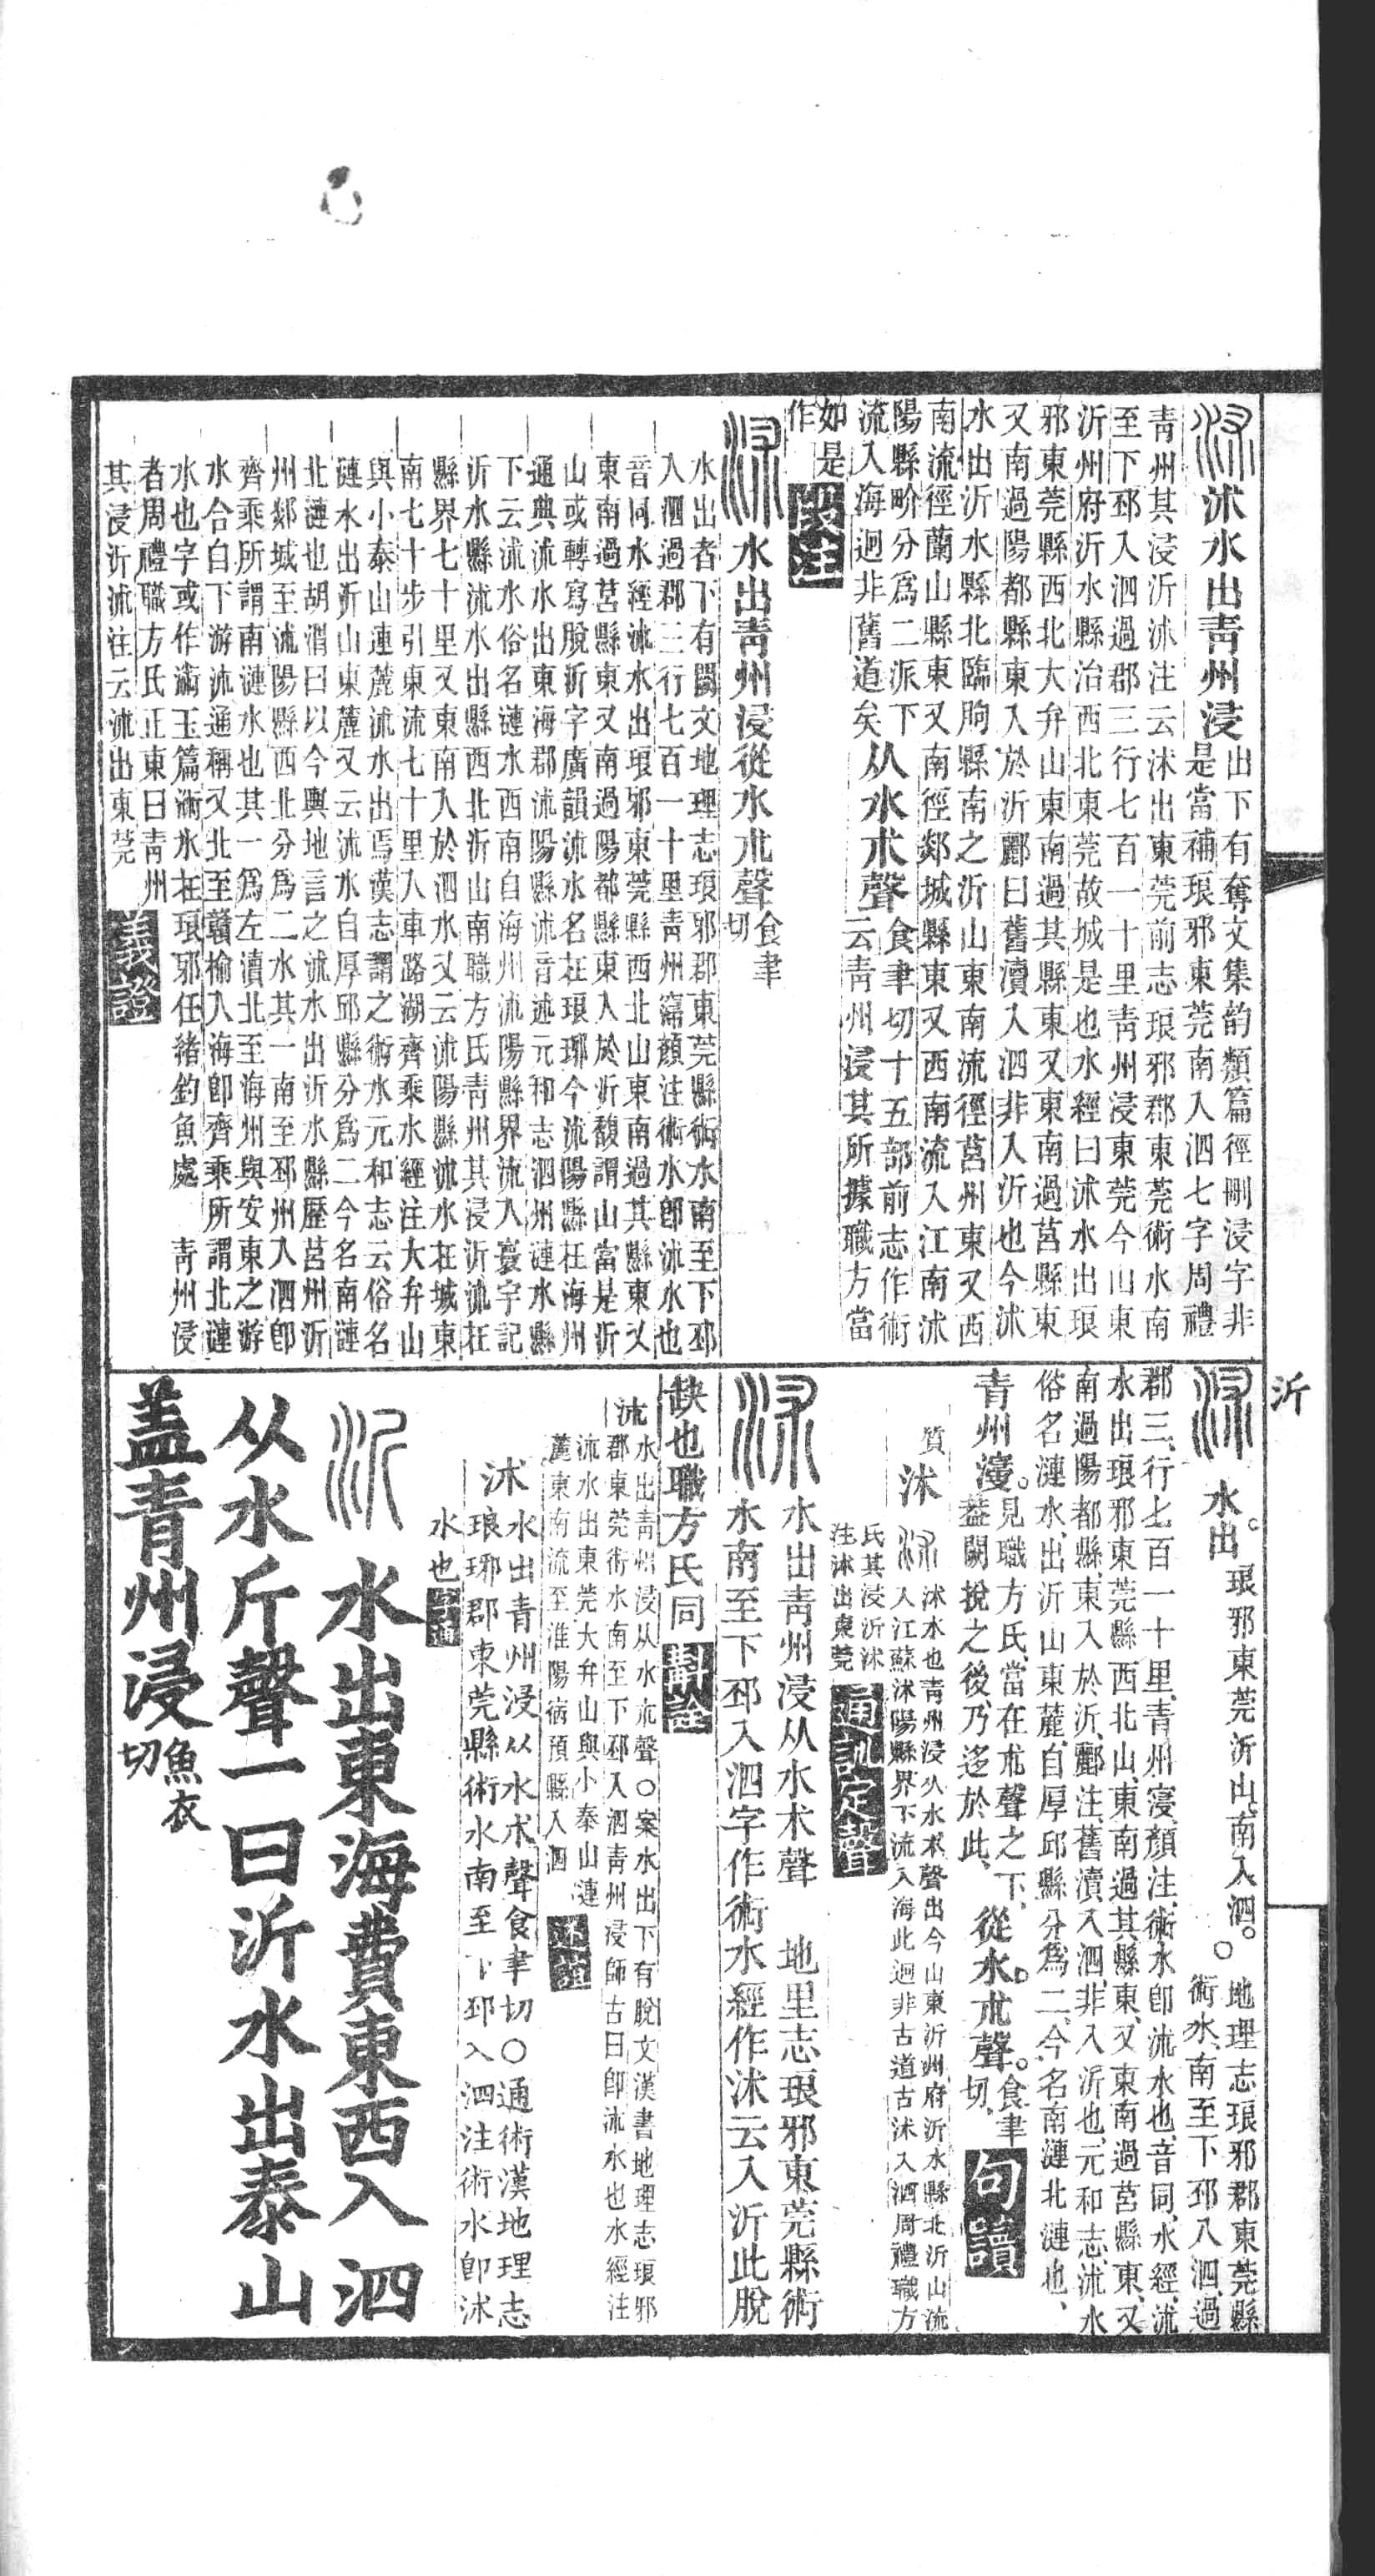 沭水出靑州浸
出下有奪文集韵類篇徑刪浸字非
是當補琅邪東莞南入泗七字周禮
靑州其浸沂沭注云沭出東莞前志琅邪郡東莞術水南
至下邳入泗過郡三行七百一十里靑州浸東莞今山東
沂州府沂水縣治西北東莞故城是也水經曰沭水出琅
邪東莞縣西北大弁山東南過其縣東又東南過莒縣東
又南過陽都縣東入於沂酈曰舊瀆入泗非入沂也今沭
水出沂水縣北臨朐縣南之沂山東南流徑莒州東又西
南流徑蘭山縣東又南徑郯城縣東又西南流入江南沭
陽縣畍分爲二派下
流入海迴非舊道矣
从水朮聲
食聿切十五部前志作術
云靑州浸其所據職方當
如是
作
段注
水出靑州浸從水朮聲
食聿
切
水出者下有闕文地理志琅邪郡東莞縣術水南至下邳
入泗過郡三行七百一十里靑州寖顏注術水卽沭水也
音同水經沭水出琅邪東莞縣西北山東南過其縣東又
東南過莒縣東又南過陽都縣東入於沂馥謂山當是沂
山或轉寫脫沂字廣韻沭水名在琅琊今沭陽縣在海州
通典沭水出東海郡沭陽縣沭音述元和志泗州漣水縣
下云沭水俗名漣水西南自海州沭陽縣界流入寰宇記
沂水縣沭水出縣西北沂山南職方氏靑州其浸沂沭在
縣界七十里又東南入於泗水又云沭陽縣沭水在城東
南七十步引東流七十里入車路湖齊乘水經注大弁山
與小泰山連麓沭水出焉漢志謂之術水元和志云俗名
漣水出沂山東麓又云沭水自厚邱縣分爲二今名南漣
北漣也胡渭曰以今輿地言之沭水出沂水縣歷莒州沂
州郯城至沭陽縣西北分爲二水其一南至邳州入泗卽
齊乘所謂南漣水也其一爲左瀆北至海州與安東之游
水合白下游沭通稱又北至贛榆入海卽齊乘所謂北漣
水也字或作潏玉篇潏水在琅邪任緒釣魚處　靑州浸
者周禮職方氏正東曰靑州
其浸沂沭注云沭出東莞
義證
水出
琅邪東莞沂山南入泗
地理志琅邪郡東莞縣
術水南至下邳入泗過
郡三行七百一十里靑州寖顏注術水卽沭水也音同水經沭
水出琅邪東莞縣西北山東南過其縣東又東南過莒縣東又
南過陽都縣東入於沂酈注舊瀆入泗非入沂也元和志沭水
俗名漣水出沂山東麓自厚邱縣分爲二今名南漣北漣也
青州濅
見職方氏當在朮聲之下
葢闕捝之後乃迻於此
從水朮聲
食聿
切
句讀
沭
沭水也靑州浸从水朮聲出今山東沂州府沂水縣北沂山流
入江蘇沭陽縣界下流入海此迴非古道古沭入泗周禮職方
氏其浸沂沭
注沭出東莞
通訓定聲
水出靑州浸从水朮聲　地里志琅邪東莞縣術
水南至下邳入泗字作術水經作沭云入沂此脫
缺也職方氏同
斠詮
沭
水出靑州浸从水朮聲〇案水出下有脫文漢書地理志琅邪
郡東莞術水南至下邳入泗靑州浸師古曰卽沭水也水經注
沭水出東莞大弁山與小泰山連
麓東南流至淮陽宿預縣入泗
沭
水出青州浸从水朮聲食聿切〇通術漢地理志
琅琊郡東莞縣術水南至下邳入泗注術水卽沭
水也
水出東海費東西入泗
从水斤聲一曰沂水出泰山
蓋青州浸
魚衣
切
沂